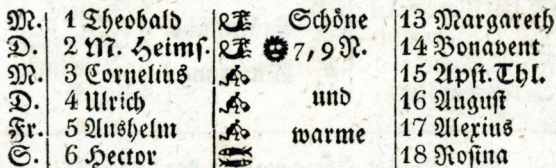 M. 1 Theobald Schöne 13 Margareth
D. 2 M. Heims. 7, 9 N. 14 Bonavent
M. 3 Cornelius 15 Apst. Thl.
D. 4 Ulrich und 16 August
Fr. 5 Anshelm warme 17 Alexius
S. 6 Hector 18 Rosina